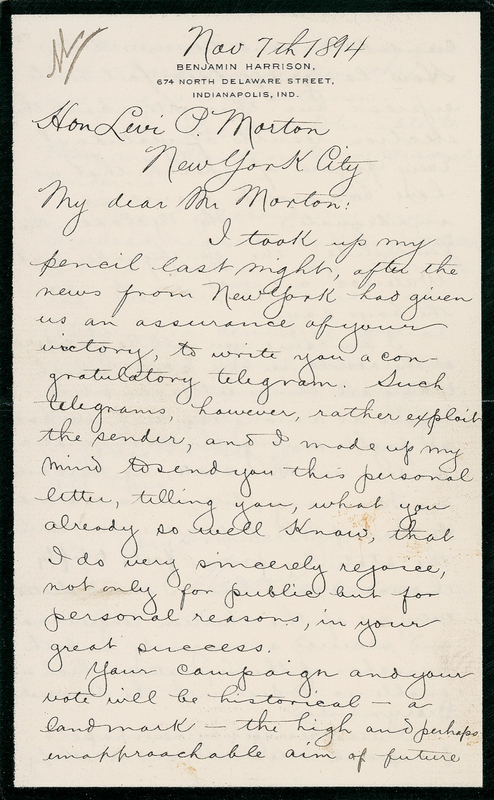 Nov 7th 1894
BENJAMIN HARRISON,
674 NORTH DELAWARE STREET,
INDIANAPOLIS, IND.
Hon Levi P. Morton
New York City
My dear Mr Morton:
I took up my
pencil last night, after the
news from New York had given
us an assurance of your
victory, to write you a con-
gratulatory telegram. Such
telegrams, however, rather exploit
the sender, and I made up my
mind to send you this personal
letter, telling you, what you
already so well know, that
I do very sincerely rejoice,
not only for public but for
personal reasons, in your
great success.
Your campaign and your
vote will be historical – a
landmark – the high and perhaps
unapproachable aim of future